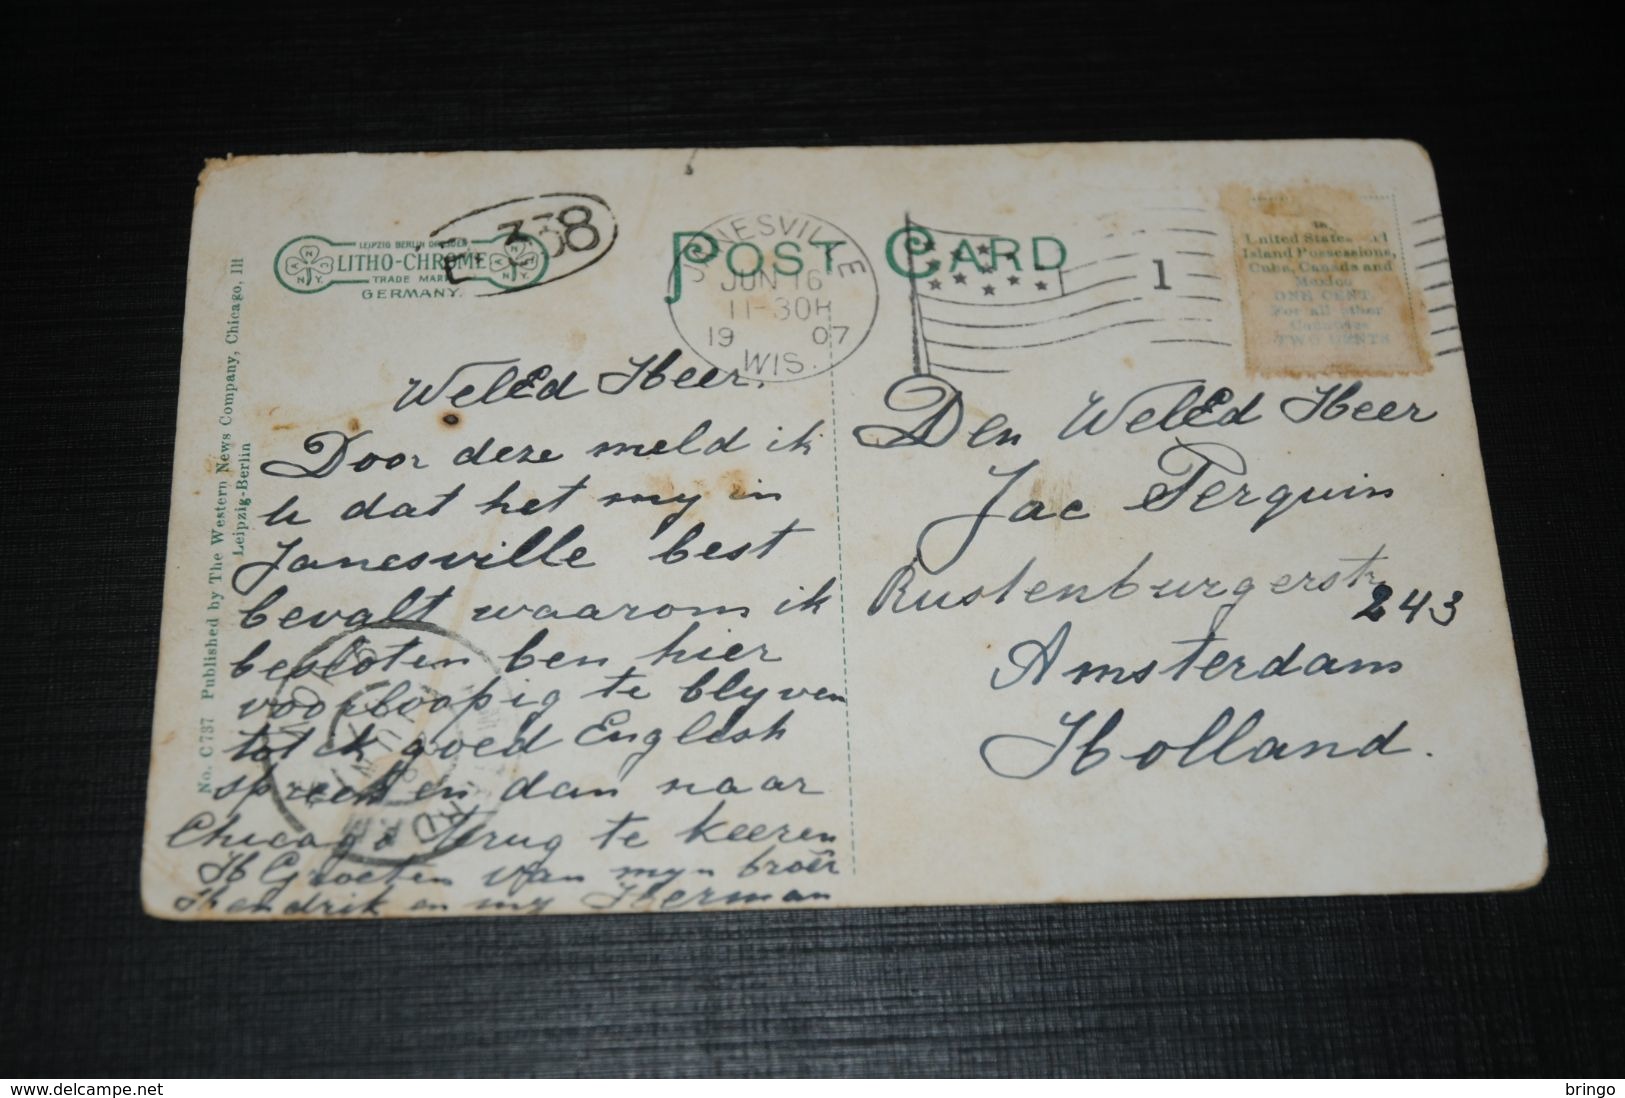 E 338
LEIPZIG BERLIN DRESDEN
LITHO-CHROME
TRADE MARK
GERMANY.
POST CARD
JANESVILLE
JUN 16
11-30
1907
WIS.
1
United States
Island Possessions,
Cuba, Canada and
Mexico
ONE CENT.
For all other
Countries
TWO CENTS
No. C 737 Published by The Western News Company, Chicago, Ill
Leipzig-Berlin
WelEd Heer.
Door deze meld ik
u dat het my in
Janesville best
bevalt waarom ik
besloten ben hier
voorloopig te blyven
tot ik goed Englesh
spreek en dan naar
Chicago terug te keeren
H Groeten van myn broêr
Hendrik en my Herman
Den WelEd Heer
Jac Terquin
Rustenburgerstr
243
Amsterdam
Holland.
bringo